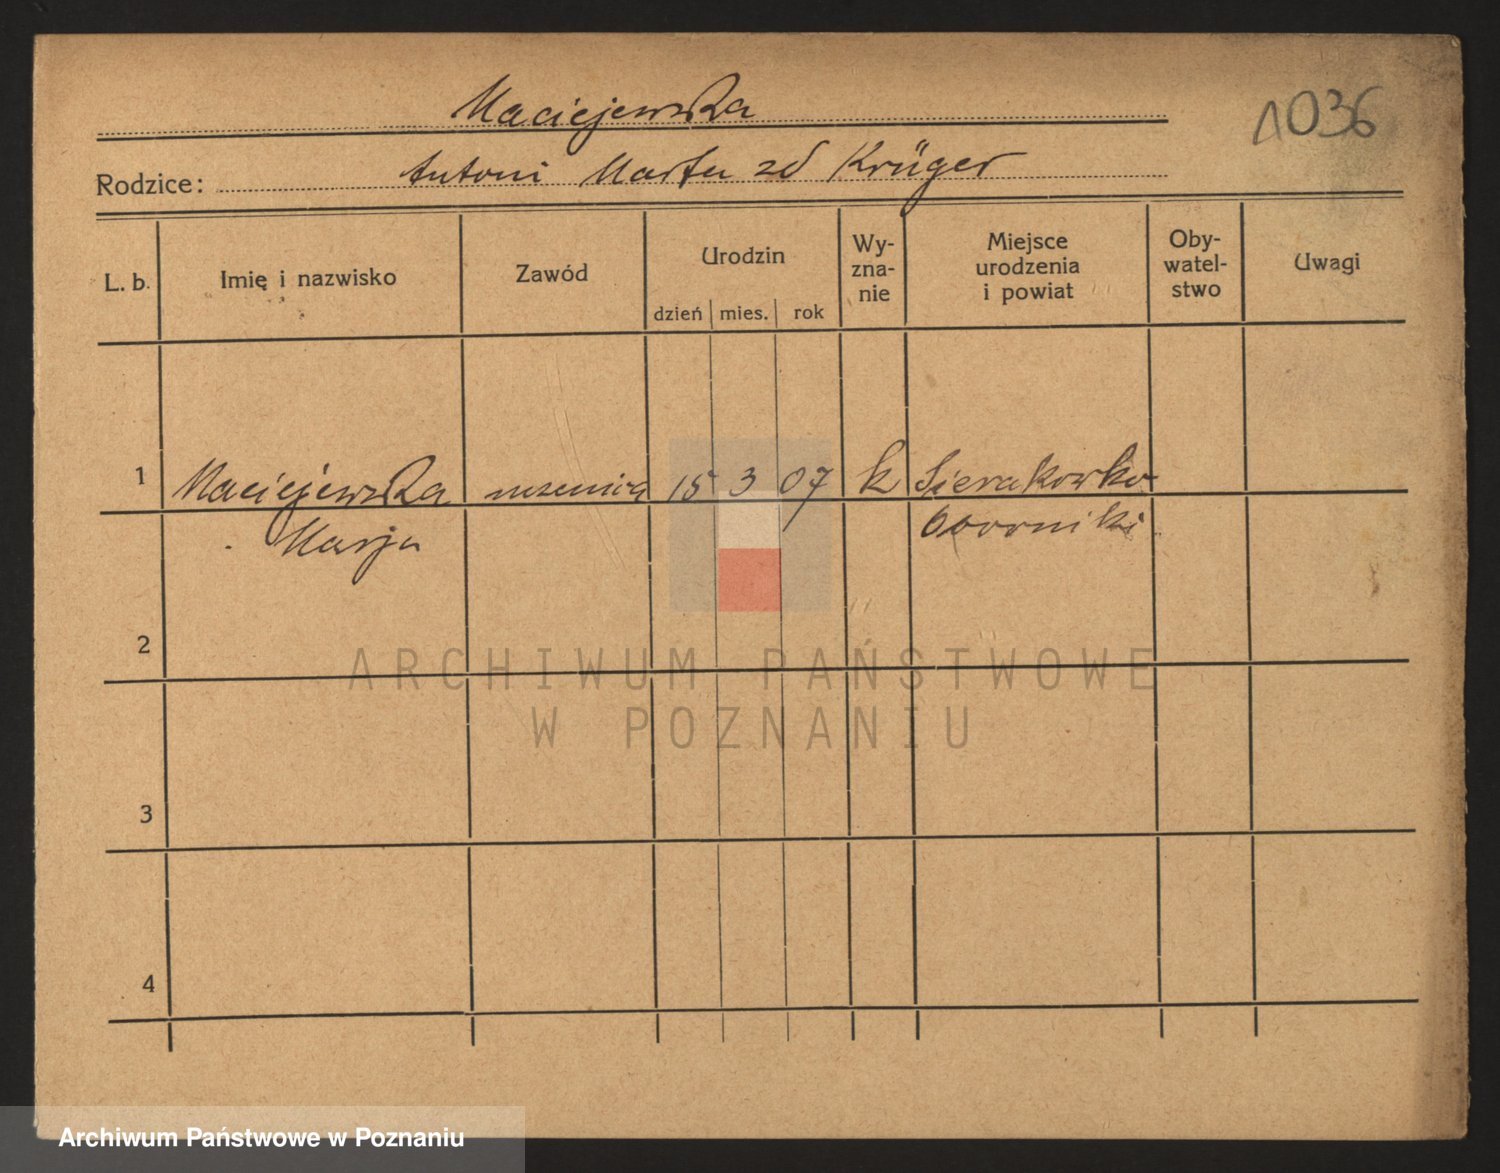 Maciejewska
1036
Rodzice: Antoni Marta zd Krüger
L. b. Imię i nazwisko Zawód Urodzin dzień mies. rok Wy-zna-nie Miejsce urodzenia i powiat Oby-watel-stwo Uwagi
1 Maciejewska uczenica 15 3 07 k Sierakowko
Marja Oborniki
2
ARCHIWUM PAŃSTWOWE
W POZNANIU
3
4
Archiwum Państwowe w Poznaniu